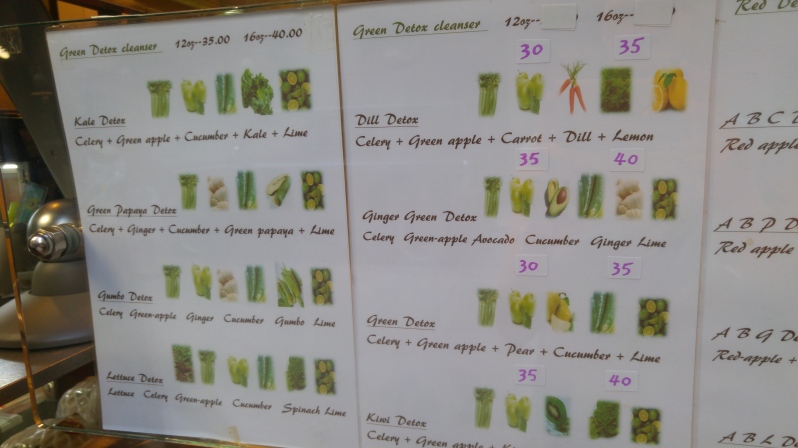 Green Detox cleanser 12oz-35.00 16oz-40.00
Kale Detox
Celery + Green apple + Cucumber + Kale + Lime
Green Papaya Detox
Celery + Ginger + Cucumber + Green papaya + Lime
Gumbo Detox
Celery Green-apple Ginger Cucumber Gumbo Lime
Lettuce Detox
Lettuce Celery Green-apple Cucumber Spinach Lime
Green Detox cleanser 12oz-- 16oz--
30 35
Dill Detox
Celery + Green apple + Carrot + Dill + Lemon
35 40
Ginger Green Detox
Celery Green-apple Avocado Cucumber Ginger Lime
30 35
Green Detox
Celery + Green apple + Pear + Cucumber + Lime
35 40
Kiwi Detox
Celery + Green apple +
Red
A B C
Red apple
A B P
Red apple
A B G
Red-apple +
A B L